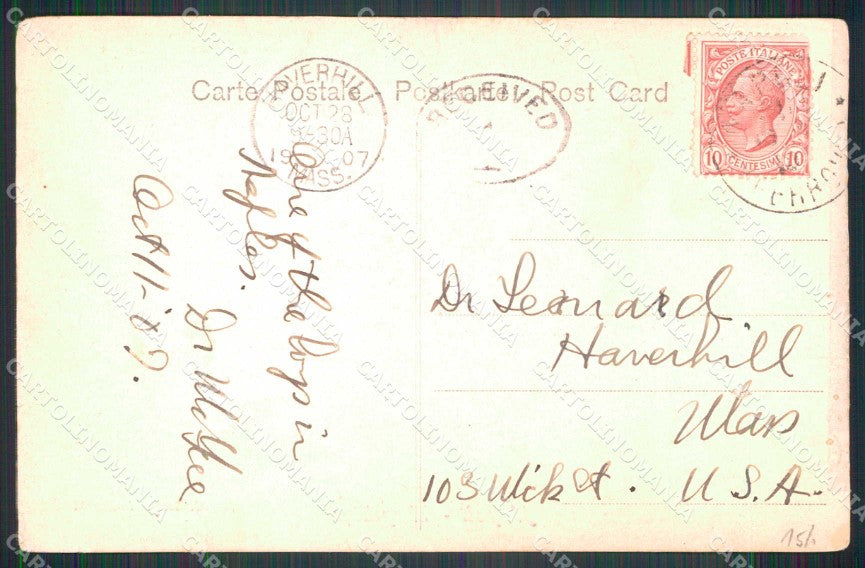 Carte Postale Postkarte Post Card
HAVERHILL
OCT 28
30A
1907
MASS.
RECEIVED
POSTE ITALIANE
10 CENTESIMI 10
One of the boys in
Naples.
Dr
Oct 11-'07.
Dr Leonard
Haverhill
Mass
103 U.S.A.
15/
CARTOLINOMANIA